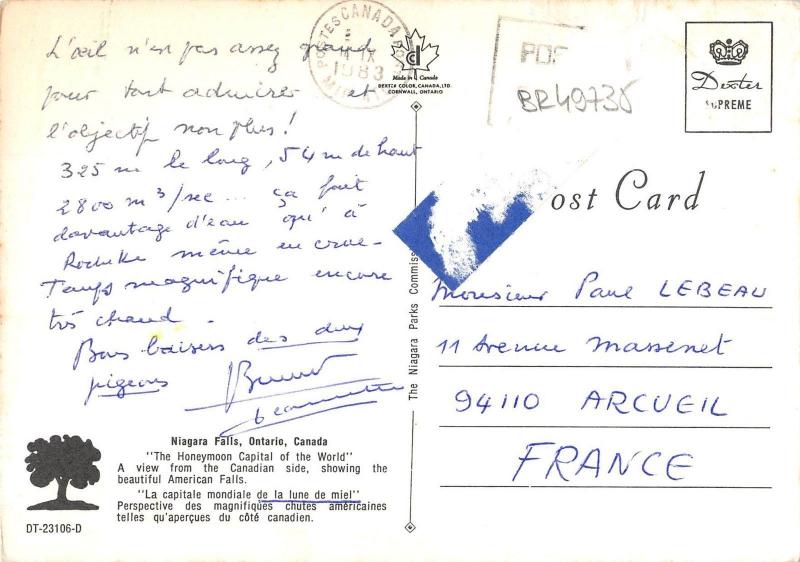 L'œil n'en pas assez grand
pour tout admirer et
l'objectif non plus!
325 m le long, 54 m de haut
2800 m3/sec... ça fait
davantage d'eau qu'à
même en crue-
Temps magnifique encore
très chaud.
Bons baisers des deux
pigeons
POSTES CANADA
IX
1983
Made in Canada
DEXTER COLOR, CANADA, LTD.
CORNWALL, ONTARIO
BR49730
Dexter
SUPREME
ost Card
The Niagara Parks Commiss
Monsieur Paul LEBEAU
11 Avenue Massenet
94110 ARCUEIL
FRANCE
Niagara Falls, Ontario, Canada
"The Honeymoon Capital of the World"
A view from the Canadian side, showing the
beautiful American Falls.
"La capitale mondiale de la lune de miel"
Perspective des magnifiques chutes américaines
telles qu'aperçues du côté canadien.
DT-23106-D